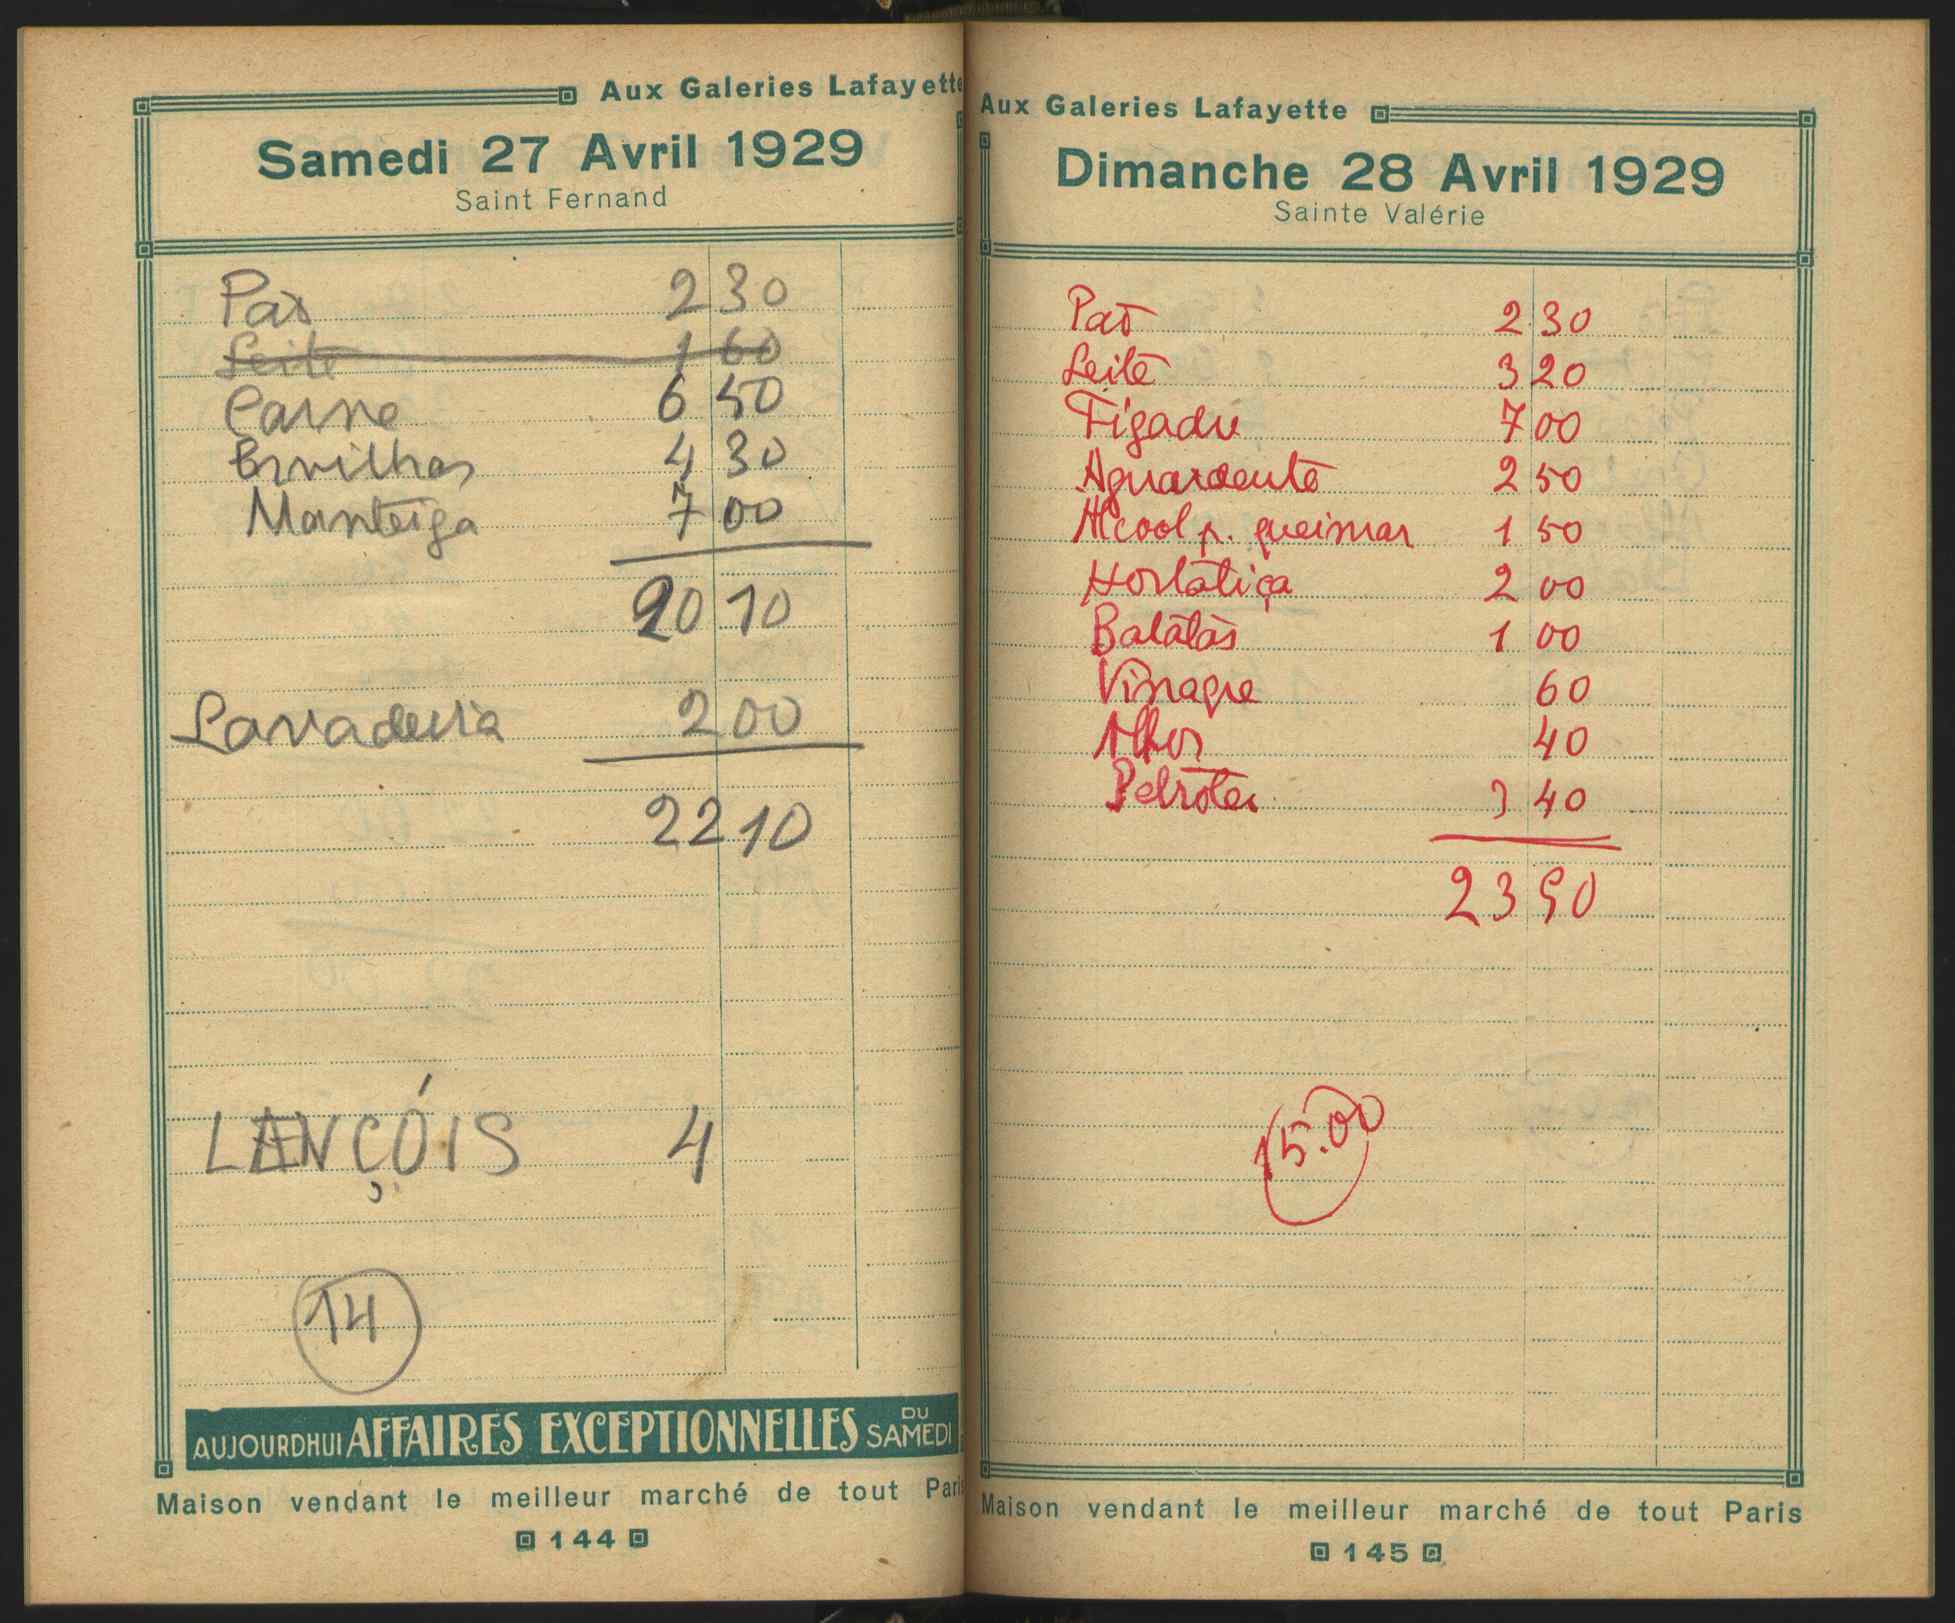 Aux Galeries Lafayette
Samedi 27 Avril 1929
Saint Fernand
Pão 2 30
Leite 1 60
Carne 6 50
Ervilhas 4 30
Manteiga 7 00
20 10
Lavadeira 2 00
22 10
LENÇÓIS 4
14
AUJOURDHUI AFFAIRES EXCEPTIONNELLES DU SAMEDI
Maison vendant le meilleur marché de tout Paris
144
Aux Galeries Lafayette
Dimanche 28 Avril 1929
Sainte Valérie
Paõ 2 30
Leite 3 20
Figado 7 00
Aguardente 2 50
Alcool p. queimar 1 50
Hortatiça 2 00
Batatas 1 00
Vinagre 60
Alhos 40
Petroteo 3 40
23 90
15.00
Maison vendant le meilleur marché de tout Paris
145